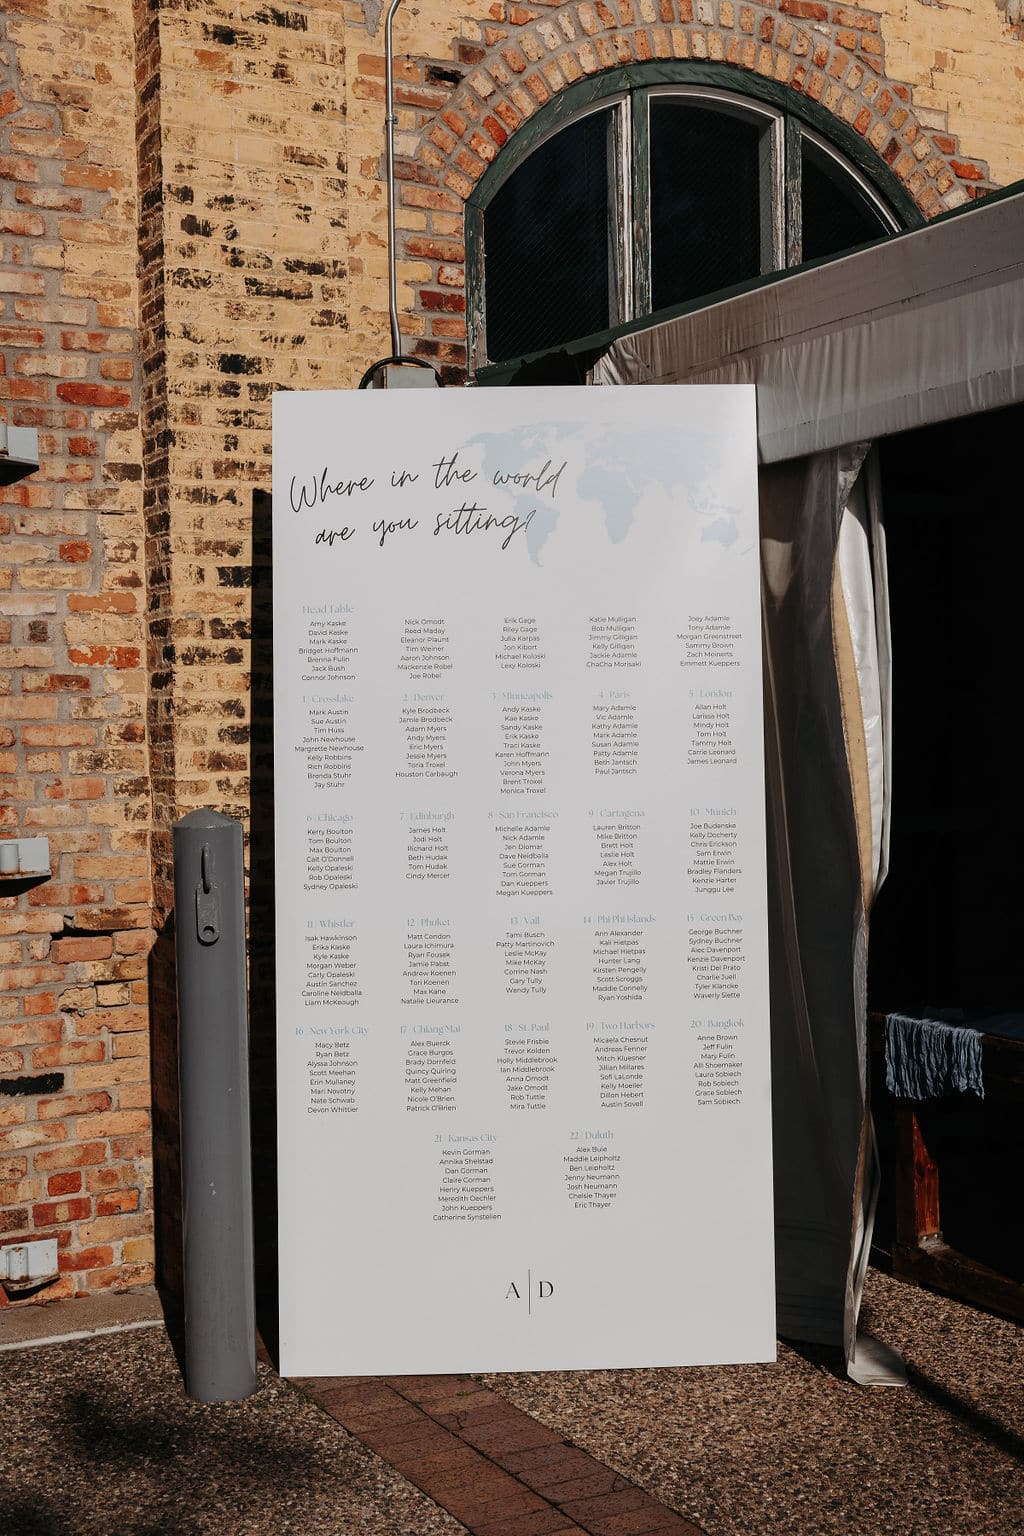 Where in the world
are you sitting?
Head Table
Amy Kaske
David Kaske
Mark Kaske
Bridget Hoffmann
Brenna Fulin
Jack Bush
Connor Johnson
Nick Omodt
Reed Maday
Eleanor Plaunt
Tim Weiner
Aaron Johnson
Mackenzie Robel
Joe Robel
Erik Gage
Riley Gage
Julia Karpas
Jon Kibort
Michael Koloski
Lexy Koloski
Katie Mulligan
Bob Mulligan
Jimmy Gilligan
Kelly Gilligan
Jackie Adamle
ChaCha Morisaki
Joey Adamle
Tony Adamle
Morgan Greenstreet
Sammy Brown
Zach Meinerts
Emmett Kueppers
1 | Crosslake
Mark Austin
Sue Austin
Tim Huss
John Newhouse
Margrette Newhouse
Kelly Robbins
Rich Robbins
Brenda Stuhr
Jay Stuhr
2 | Denver
Kyle Brodbeck
Jamie Brodbeck
Adam Myers
Andy Myers
Eric Myers
Jessie Myers
Toria Troxel
Houston Carbaugh
3 | Minneapolis
Andy Kaske
Kae Kaske
Sandy Kaske
Erik Kaske
Traci Kaske
Karen Hoffmann
John Myers
Verona Myers
Brent Troxel
Monica Troxel
4 | Paris
Mary Adamle
Vic Adamle
Kathy Adamle
Mark Adamle
Susan Adamle
Patty Adamle
Beth Jantsch
Paul Jantsch
5 | London
Allan Holt
Larissa Holt
Mindy Holt
Tom Holt
Tammy Holt
Carrie Leonard
James Leonard
6 | Chicago
Kerry Boulton
Tom Boulton
Max Boulton
Cait O'Donnell
Kelly Opaleski
Rob Opaleski
Sydney Opaleski
7 | Edinburgh
James Holt
Jodi Holt
Richard Holt
Beth Hudak
Tom Hudak
Cindy Mercer
8 | San Francisco
Michelle Adamle
Nick Adamle
Jen Diomar
Dave Neidballa
Sue Gorman
Tom Gorman
Dan Kueppers
Megan Kueppers
9 | Cartagena
Lauren Britton
Mike Britton
Brett Holt
Leslie Holt
Alex Holt
Megan Trujillo
Javier Trujillo
10 | Munich
Joe Budenske
Kelly Docherty
Chris Erickson
Sam Erwin
Mattie Erwin
Bradley Flanders
Kenzie Harter
Junggu Lee
11 | Whistler
Isak Hawkinson
Erika Kaske
Kyle Kaske
Morgan Weber
Carly Opaleski
Austin Sanchez
Caroline Neidballa
Liam McKeough
12 | Phuket
Matt Condon
Laura Ichimura
Ryan Fousek
Jamie Pabst
Andrew Koenen
Tori Koenen
Max Kane
Natalie Lieurance
13 | Vail
Tami Busch
Patty Martinovich
Leslie McKay
Mike McKay
Corrine Nash
Gary Tully
Wendy Tully
14 | Phi Phi Islands
Ann Alexander
Kali Hietpas
Michael Hietpas
Hunter Lang
Kirsten Pengelly
Scott Scroggs
Maddie Connelly
Ryan Yoshida
15 | Green Bay
George Buchner
Sydney Buchner
Alec Davenport
Kenzie Davenport
Kristi Del Prato
Charlie Juell
Tyler Klancke
Waverly Slette
16 | New York City
Macy Betz
Ryan Betz
Alyssa Johnson
Scott Meehan
Erin Mullaney
Mari Novotny
Nate Schwab
Devon Whittier
17 | Chiang Mai
Alex Buerck
Grace Burgos
Brady Dornfeld
Quincy Quiring
Matt Greenfield
Kelly Mehan
Nicole O'Brien
Patrick O'Brien
18 | St. Paul
Stevie Frisbie
Trevor Kolden
Holly Middlebrook
Ian Middlebrook
Anna Omodt
Jake Omodt
Rob Tuttle
Mira Tuttle
19 | Two Harbors
Micaela Chesnut
Andreas Fenner
Mitch Kluesner
Jillian Millares
Sofi LaLonde
Kelly Moeller
Dillon Hebert
Austin Sovell
20 | Bangkok
Anne Brown
Jeff Fulin
Mary Fulin
Alli Shoemaker
Laura Sobiech
Rob Sobiech
Grace Sobiech
Sam Sobiech
21 | Kansas City
Kevin Gorman
Annika Shelstad
Dan Gorman
Claire Gorman
Henry Kueppers
Meredith Oechler
John Kueppers
Catherine Synstelien
22 | Duluth
Alex Buie
Maddie Leipholtz
Ben Leipholtz
Jenny Neumann
Josh Neumann
Chelsie Thayer
Eric Thayer
A | D